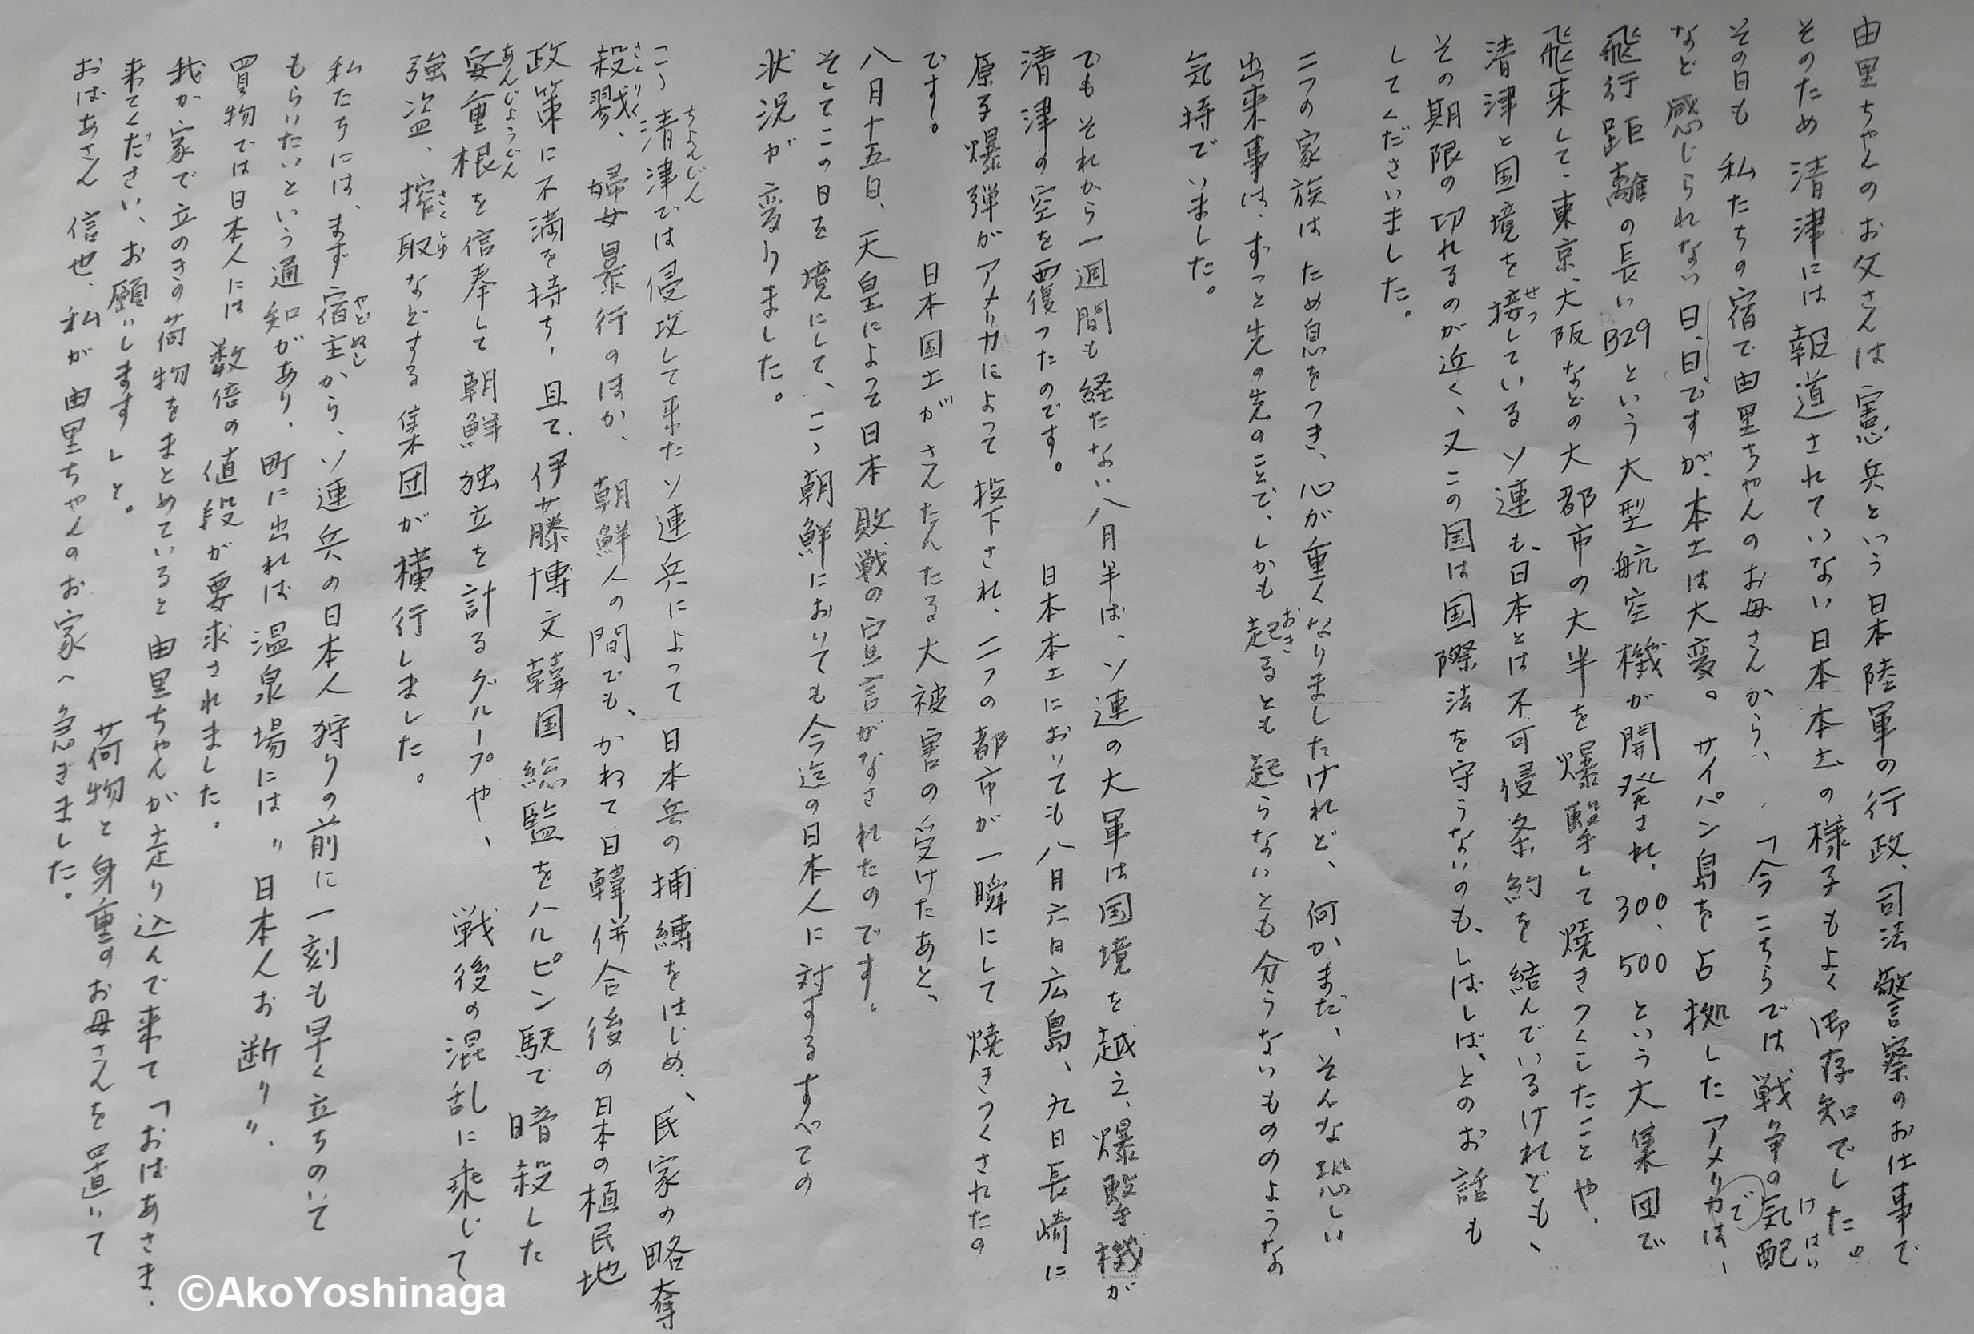 由里ちゃんのお父さんは憲兵という日本陸軍の行政、司法警察のお仕事で
そのため清津には報道されていない日本本土の様子もよく御存知でした。
その日も 私たちの宿で由里ちゃんのお母さんから、「今こちらでは戦争の気配
けはい
など感じられない日、日ですが、本土は大変。サイパン島を占拠したアメリカは、
で
飛行距離の長いB29という大型航空機が開発され、300、500という大集団で
飛来して、東京、大阪などの大都市の大半を爆撃して焼きつくしたことや、
清津と国境を接しているソ連も、日本とは不可侵条約を結んでいるけれども、
せつ
その期限の切れるのが近く、又この国は国際法を守らないのも、しばしば、とのお話も
してくださいました。
二つの家族は ため息をつき、心が重くなりましたけれど、何かまだ、そんな恐しい
出来事は、ずっと先の先のことで、しかも起るとも起らないとも分らないもののような
おき
気持でいました。
でも それから一週間も経たない八月半ば、ソ連の大軍は国境を越え、爆撃機が
清津の空を覆ったのです。 日本本土においても八月六日広島、九日長崎に
原子爆弾がアメリカによって投下され、二つの都市が一瞬にして焼きつくされたの
です。 日本国土がさんたんたる大被害の受けたあと、
八月十五日、天皇によって日本敗戦の宣言がなされたのです。
そしてこの日を境にして、こゝ朝鮮においても今迄の日本人に対するすべての
状況が変りました。
こゝ清津では侵攻して来たソ連兵によって日本兵の捕縛をはじめ、民家の略奪
ちょんじん
殺戮、婦女暴行のほか、朝鮮人の間でも、かねて日韓併合後の日本の植民地
さくりく
政策に不満を持ち、且て、伊藤博文韓国総監をハルピン駅で暗殺した
安重根を信奉して朝鮮独立を計るグループや、 戦後の混乱に乗じて
あんじょうごん
強盗、搾取などする集団が横行しました。
さくしゅ
私たちには、まず宿主から、ソ連兵の日本人狩りの前に一刻も早く立ちのいて
やどぬし
もらいたいという通知があり、町に出れば温泉場には〃日本人お断り〃、
買物では日本人には数倍の値段が要求されました。
我が家で立のきの荷物をまとめていると由里ちゃんが走り込んで来て「おばあさま、
来てください、お願いします」と。 荷物と身重のお母さんを置いて
おばあさん 信也、私が由里ちゃんのお家へ急ぎました。
©AkoYoshinaga